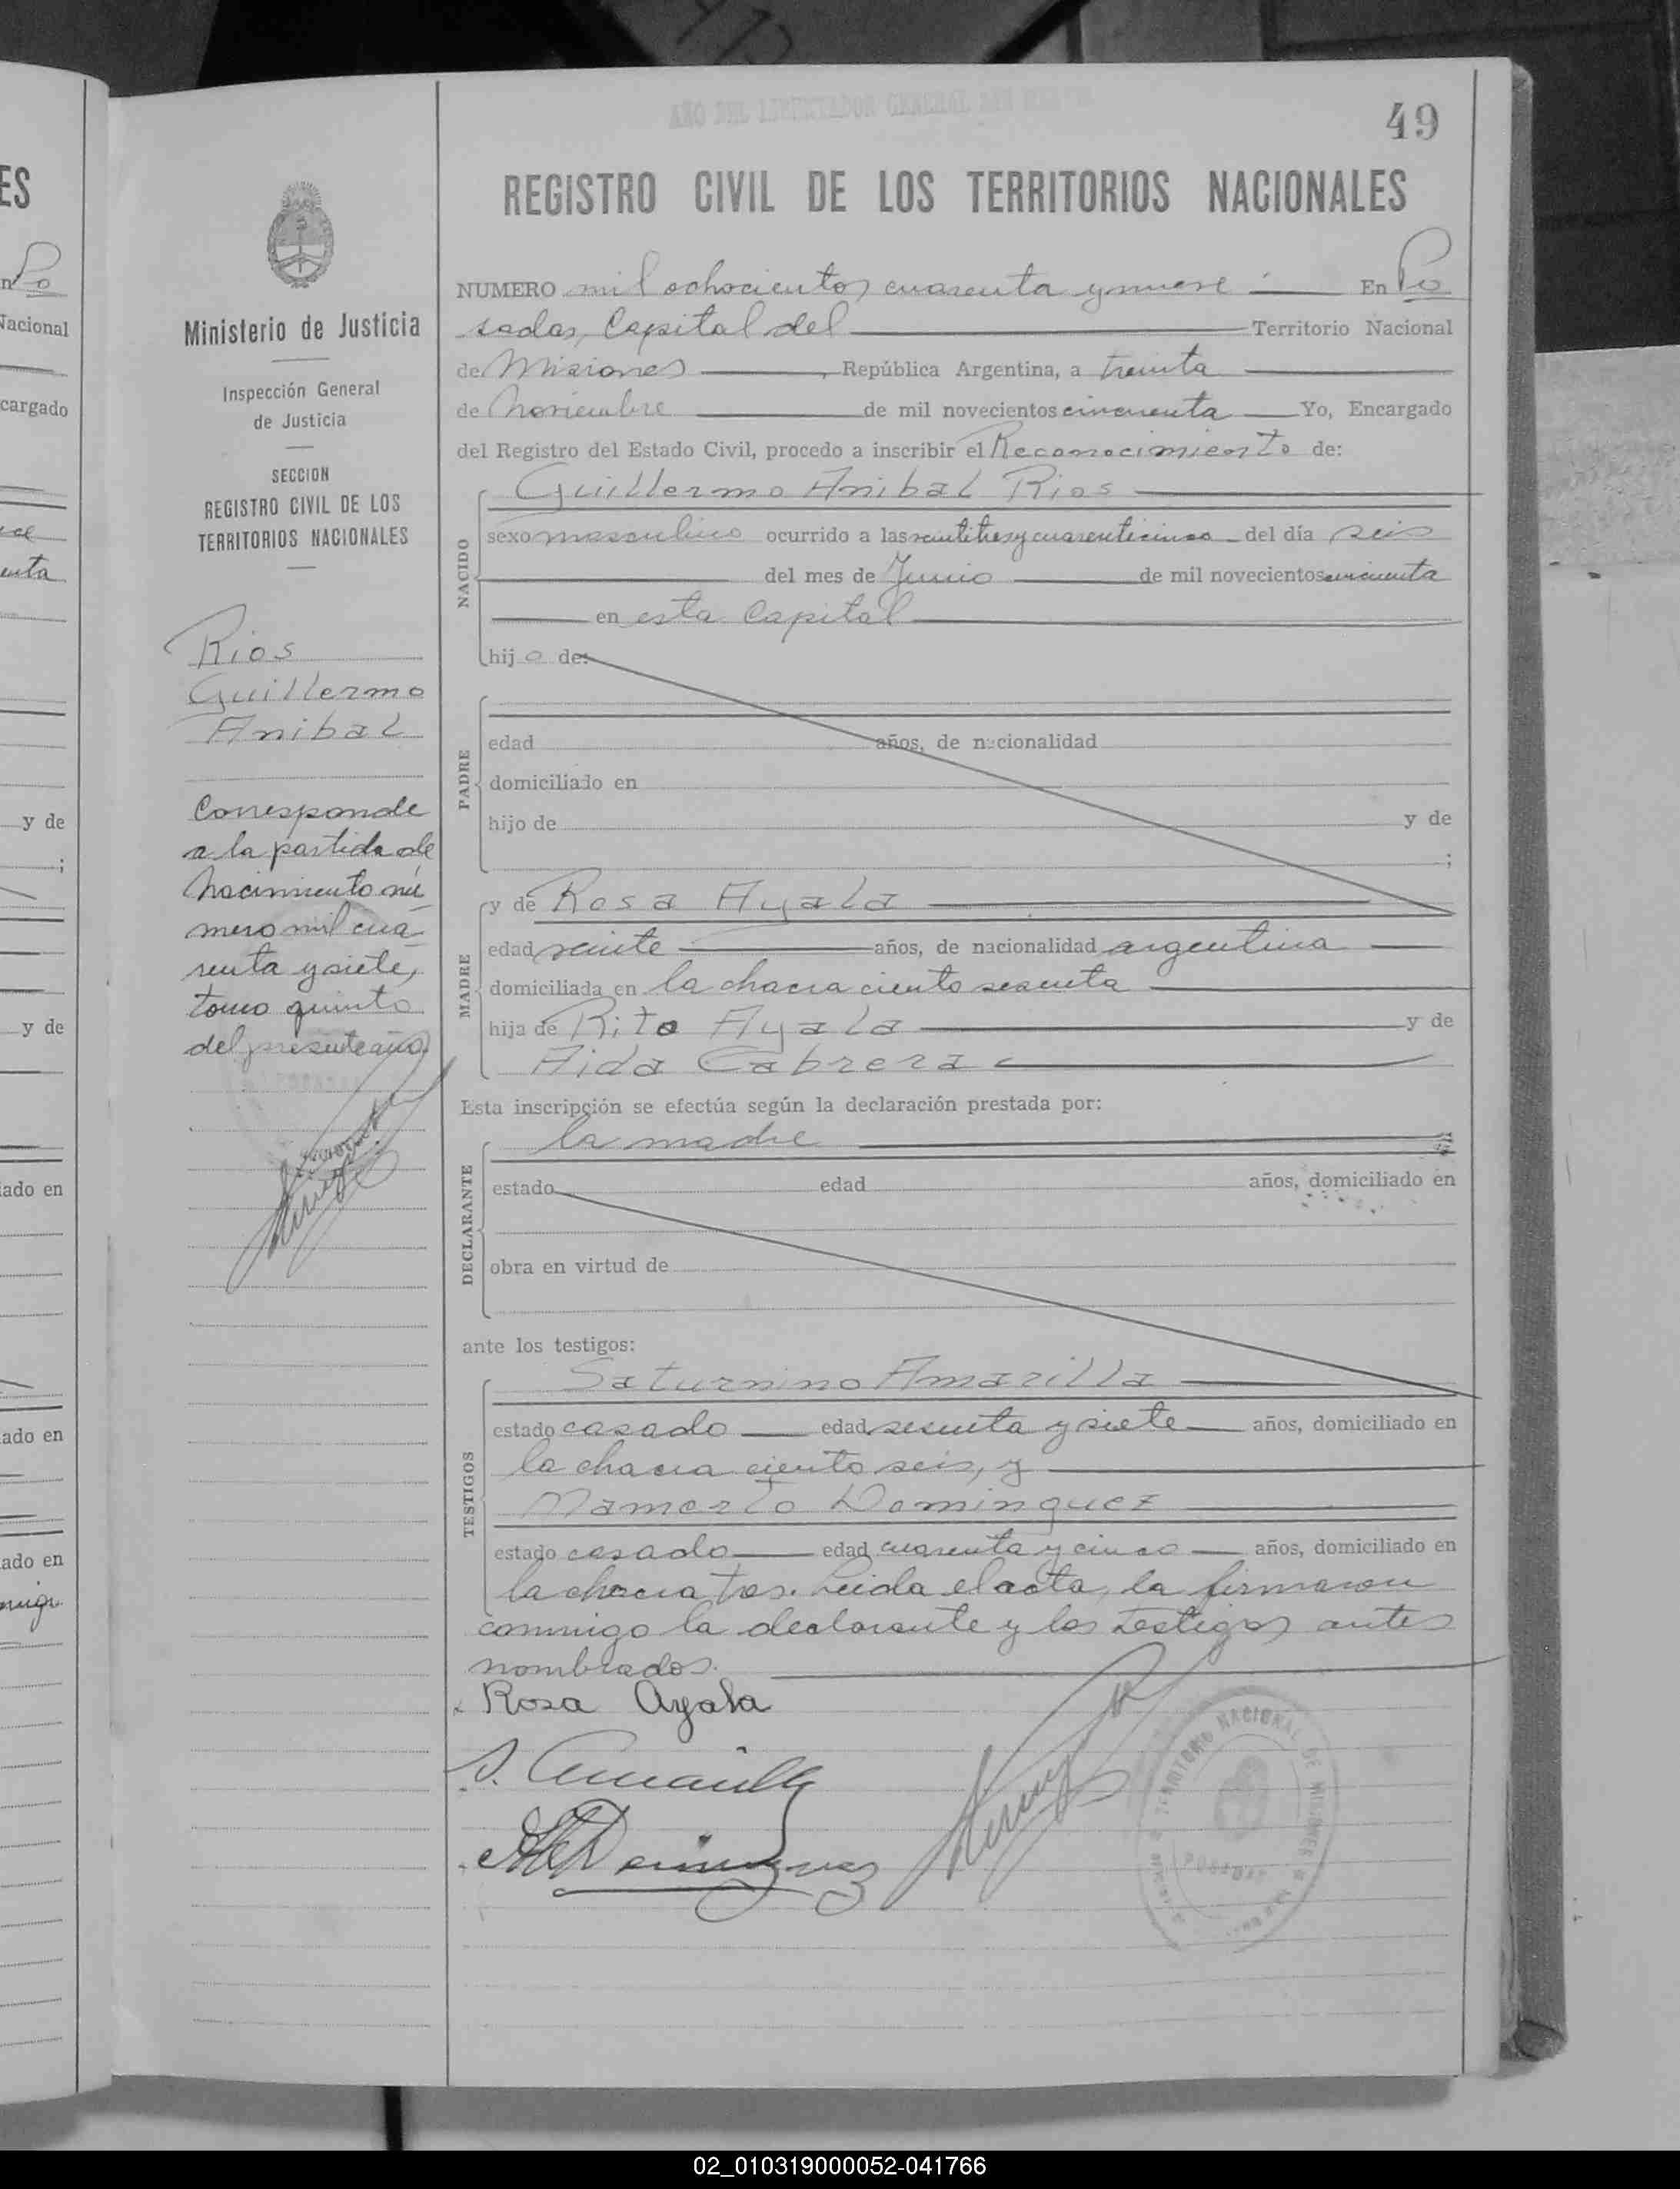 AÑO DEL LIBERTADOR GENERAL SAN MARTIN
49
REGISTRO CIVIL DE LOS TERRITORIOS NACIONALES
Ministerio de Justicia
Inspección General
de Justicia
SECCION
REGISTRO CIVIL DE LOS
TERRITORIOS NACIONALES
Rios
Guillermo
Anibal
Corresponde
a la partida de
nacimiento nú
mero mil cua
renta y siete,
tomo quinto
del presente año
NUMERO mil ochocientos cuarenta y nueve En Po
sadas, Capital del Territorio Nacional
de Misiones, República Argentina, a treinta
de Noviembre de mil novecientos cincuenta Yo, Encargado
del Registro del Estado Civil, procedo a inscribir el Reconocimiento de:
Guillermo Anibal Rios
NACIDO
sexo masculino ocurrido a las veintitres y cuarenticinco del día seis
del mes de Junio de mil novecientos cincuenta
en esta Capital
hijo de:
PADRE
edad años, de nacionalidad
domiciliado en
hijo de y de
;
MADRE
y de Rosa Ayala
edad veinte años, de nacionalidad argentina
domiciliada en la chacra ciento sesenta
hija de Rito Ayala y de
Aida Cabrera
Esta inscripción se efectúa según la declaración prestada por:
DECLARANTE
la madre
estado edad años, domiciliado en
obra en virtud de
ante los testigos:
TESTIGOS
Saturnino Amarilla
estado casado edad sesenta y siete años, domiciliado en
la chacra ciento seis, y
Mamerto Dominguez
estado casado edad cuarenta y cinco años, domiciliado en
la chacra tres. Leida el acta, la firmaron
conmigo la declarante y los testigos antes
nombrados.
Rosa Ayala
S. Amarilla
Dominguez
TERRITORIO NACIONAL DE MISIONES
POSADAS
ES
n Po
Nacional
cargado
y de
;
y de
ado en
ado en
ado en
02_010319000052-041766